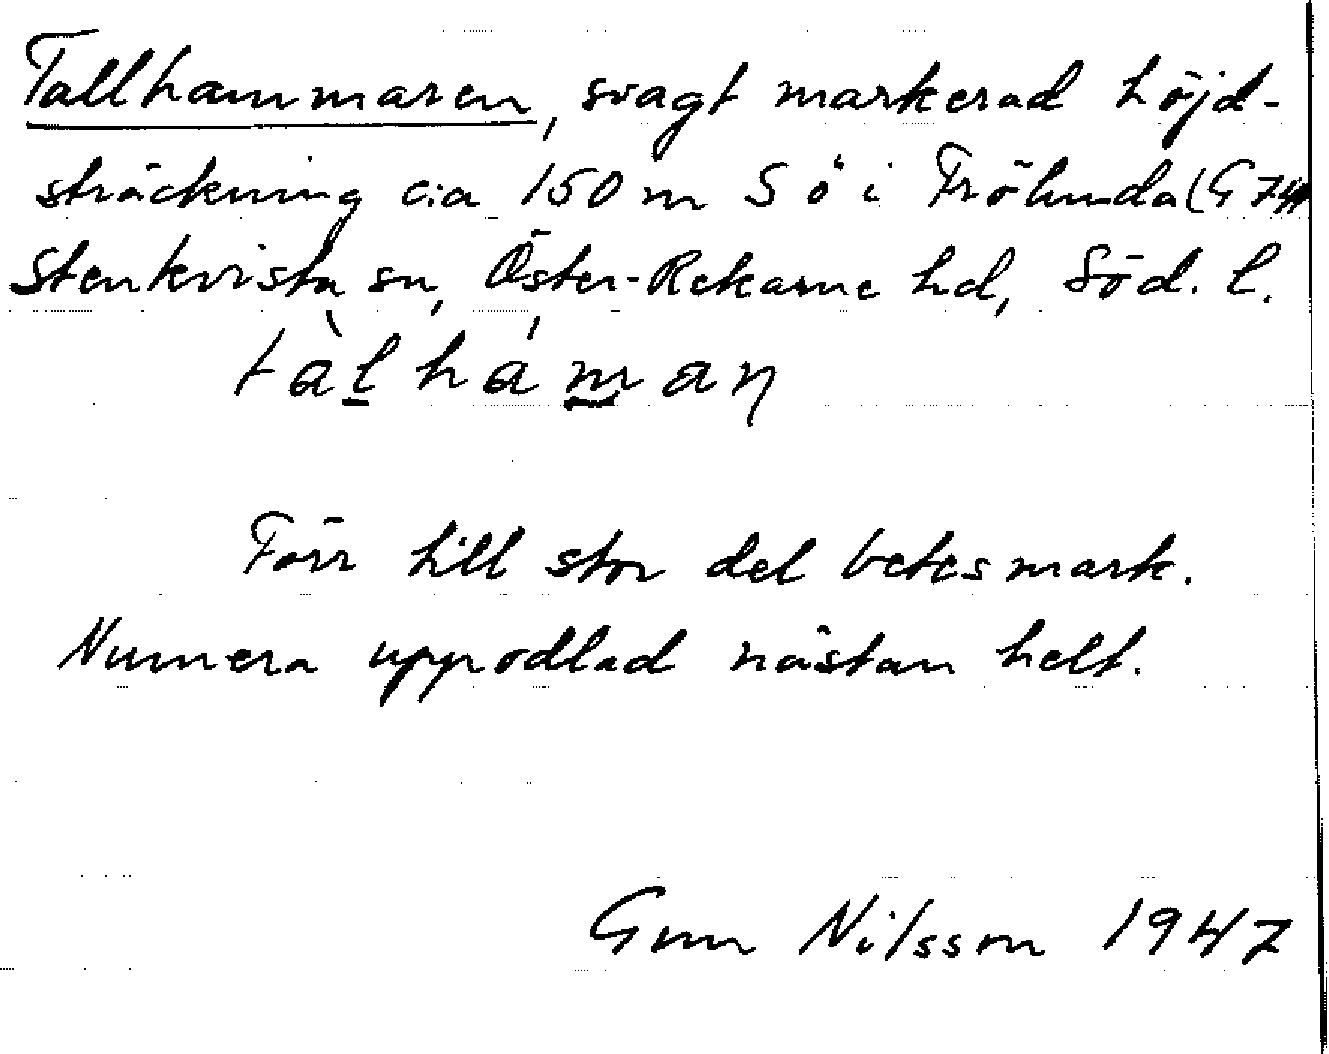 Tallhammaren, svagt markerad höjd-
sträckning c:a 150 m S ö i Frölunda (G 74)
Stenkvista sn, Öster-Rekarne hd, Söd. l.
tàl̲hám̲aṇ
Förr till stor del betesmark.
Numera uppodlad nästan helt.
Gun Nilsson 1947